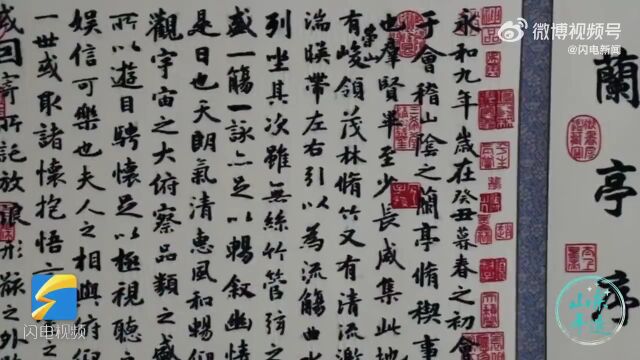 微博视频号
@闪电新闻
蘭亭序
永和九年歲在癸丑暮春之初會
于會稽山陰之蘭亭脩禊事
也羣賢畢至少長咸集此地
崇山
有峻領茂林脩竹又有清流激
湍暎帶左右引以為流觴曲水
列坐其次雖無絲竹管弦之
盛一觴一詠亦足以暢敘幽情
是日也天朗氣清惠風和暢仰
觀宇宙之大俯察品類之盛
所以遊目騁懷足以極視聽之
娛信可樂也夫人之相與俯仰
一世或取諸懷抱悟言
或因寄所託放浪形骸之外
闪电视频